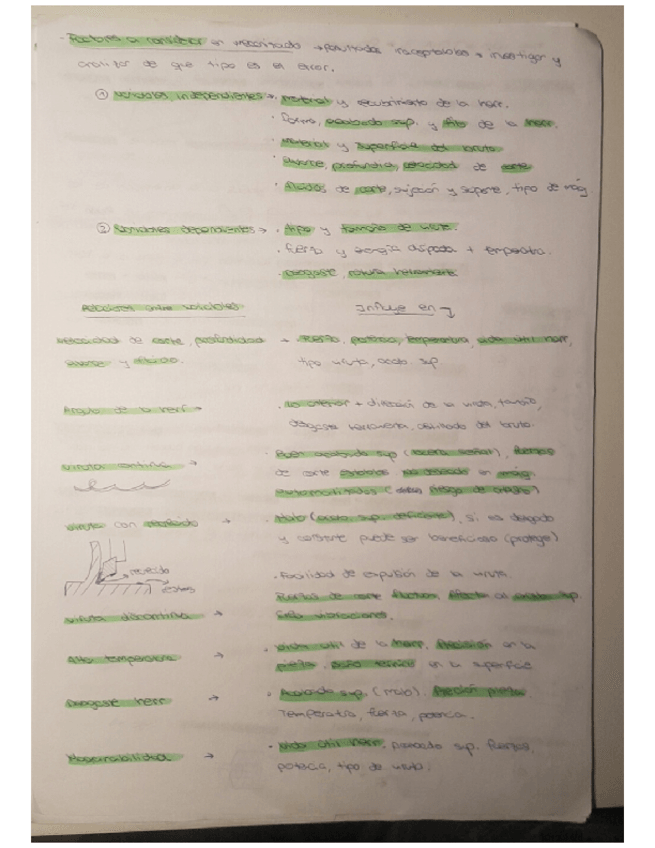 · Factores a considerar en mecanizado → resultados inaceptables → investigar y
analizar de que tipo es el error.
① Variables independientes → · material y recubrimiento de la herr.
· Forma, acabado sup. y filo de la herr.
· Material y superficie del bruto.
· Avance, profundida, velocidad de corte
· Fluidos de corte, sujeción y soporte, tipo de máq
② Variables dependientes → · tipo y tamaño de viruta.
· fuerza y energía disipada + temperatura.
· Desgaste, rotura herramienta
Relaciones entre variables Influye en
Velocidad de corte, profundidad → fuerza, potencia, temperatura, vida útil herr,
avance y fluido. tipo viruta, acaba sup
Angulo de la herr → · Lo anterior + dirección de la viruta,
desgaste herramienta, del bruto.
Viruta continua → · Buen acabado sup (buena señal), fuerzas
de corte estables no deseado en máq.
automatizadas (riesgo de atasco)
Viruta con recrecido → · Malo (acaba sup. deficiente), si es delgado
y constante puede ser beneficioso (protege)
recrecido
· Facilidad de expulsión de la viruta.
Viruta discontinua → Fuerzas de corte fluctuan, afectan al acaba sup.
vibraciones.
Alta temperatura → · Vida útil de la herr, precisión en la
pieza, daño térmico en la superficie
Desgaste herr → · Acabado sup. (malo). Preción pieza.
Temperatura, fuerza, potencia.
Maquinabilidad → · Vida útil herr, sup. fuerzas,
potecia, tipo de viruta.